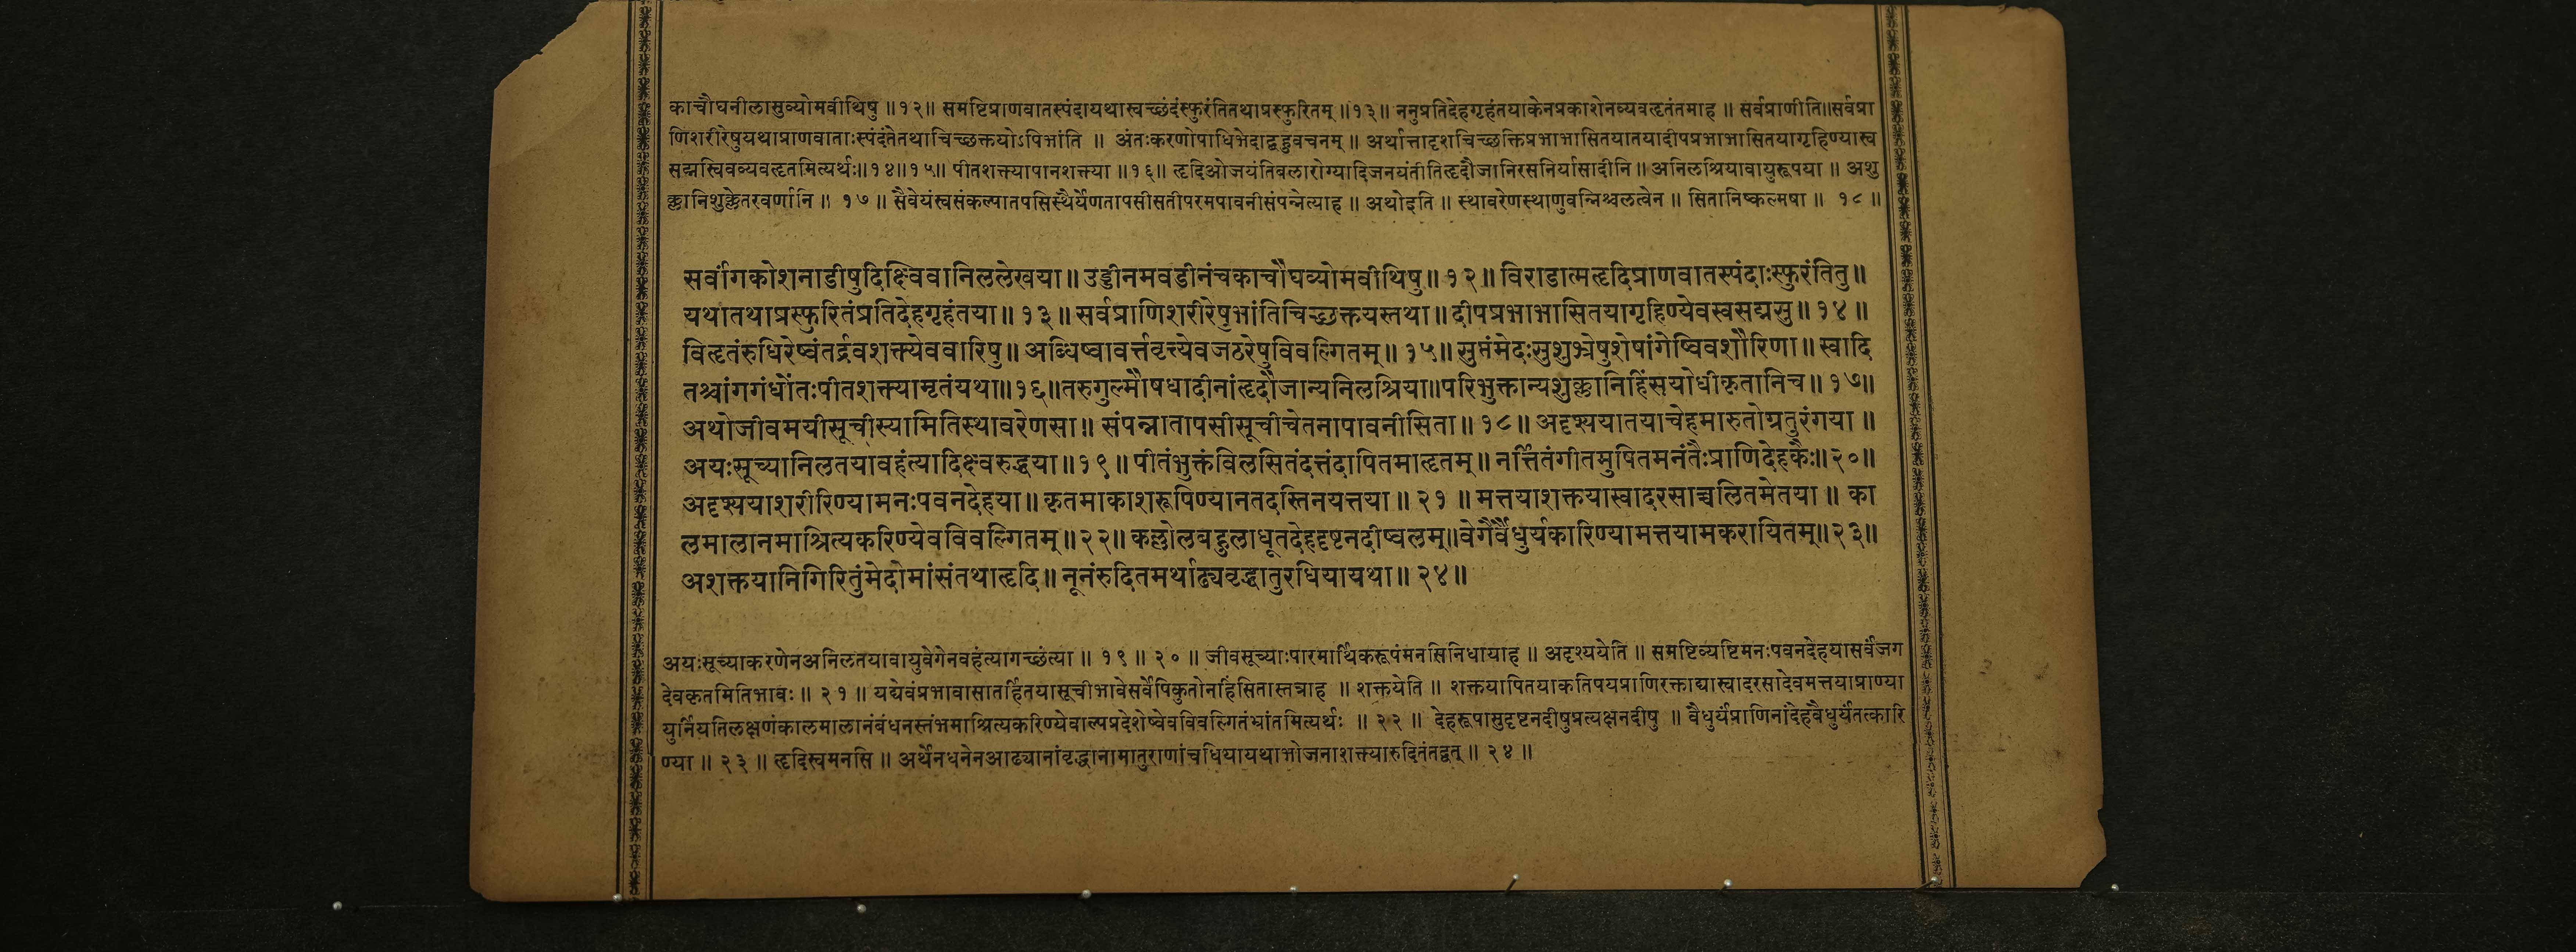 काचौघनीलासुव्योमवीथिषु ॥१२॥ समष्टिप्राणवातस्पंदायथास्वच्छंदंस्फुरंतितथाप्रस्फुरितम् ॥१३॥ ननुप्रतिदेहगृहंतयाकेनप्रकाशेनव्यवहृतंतमाह ॥ सर्वप्राणीति॥सर्वप्रा
णिशरीरेषुयथाप्राणवाताःस्पंदंतेतथाचिच्छक्तयोऽपिभांति ॥ अंतःकरणोपाधिभेदाद्बहुवचनम् ॥ अर्थात्तादृशचिच्छक्तिप्रभाभासितयातयादीपप्रभाभासितयागृहिण्यास्व
सद्मस्विवव्यवहृतमित्यर्थः॥१४॥१५॥ पीतशक्त्यापानशक्त्या ॥१६॥ हृदिओजयंतिबलारोग्यादिजनयंतीतिहृदौजानिरसनिर्यासादीनि ॥ अनिलश्रियावायुरूपया ॥ अशु
क्लानिशुक्लेतरवर्णानि ॥ १७ ॥ सैवेयंस्वसंकल्पातपसिस्थैर्येणतापसीसतीपरमपावनीसंपन्नेत्याह ॥ अथोइति ॥ स्थावरेणस्थाणुवन्निश्चलत्वेन ॥ सितानिष्कल्मषा ॥ १८ ॥
सर्वांगकोशनाडीषुदिक्ष्विवानिललेखया॥ उड्डीनमवडीनंचकाचौघव्योमवीथिषु॥१२॥ विराडात्महृदिप्राणवातस्पंदाःस्फुरंतितु॥
यथातथाप्रस्फुरितंप्रतिदेहगृहंतया॥१३॥ सर्वप्राणिशरीरेषुभांतिचिच्छक्तयस्तथा॥ दीपप्रभाभासितयागृहिण्येवस्वसद्मसु॥१४॥
विहृतंरुधिरेष्वंतर्द्रवशक्त्येववारिषु॥ अब्धिष्वावर्त्तवृत्त्येवजठरेषुविवल्गितम्॥१५॥ सुप्तंमेदःसुशुभ्रेषुशेषांगेष्विवशौरिणा॥ स्वादि
तश्चांगगंधोंतःपीतशक्त्यामृतंयथा॥१६॥तरुगुल्मौषधादीनांहृदौजान्यनिलश्रिया॥परिभुक्तान्यशुक्लानिहिंसयोधीकृतानिच॥१७॥
अथोजीवमयीसूचीस्यामितिस्थावरेणसा॥ संपन्नातापसीसूचीचेतनापावनीसिता॥१८॥ अदृश्ययातयाचेहमारुतोग्रतुरंगया॥
अयःसूच्यानिलतयावहंत्यादिक्ष्वरुद्धया॥१९॥ पीतंभुक्तंविलसितंदत्तंदापितमाहृतम्॥ नर्त्तितंगीतमुषितमनंतैःप्राणिदेहकैः॥२०॥
अदृश्ययाशरीरिण्यामनःपवनदेहया॥ कृतमाकाशरूपिण्यानतदस्तिनयत्तया॥२१॥ मत्तयाशक्तयास्वादरसाच्चलितमेतया॥ का
लमालानमाश्रित्यकरिण्येवविवल्गितम्॥२२॥ कल्लोलबहुलाधूतदेहदृष्टनदीष्वलम्॥वेगैर्वैधुर्यकारिण्यामत्तयामकरायितम्॥२३॥
अशक्तयानिगिरितुंमेदोमांसंतथाहृदि॥ नूनंरुदितमर्थाढ्यवृद्धातुरधियायथा॥२४॥
अयःसूच्याकरणेनअनिलतयावायुवेगेनवहंत्यागच्छंत्या ॥ १९ ॥ २० ॥ जीवसूच्याःपारमार्थिकरूपंमनसिनिधायाह ॥ अदृश्ययेति ॥ समष्टिव्यष्टिमनःपवनदेहयासर्वंजग
देवकृतमितिभावः ॥ २१ ॥ यद्येवंप्रभावासातर्हितयासूचीभावेसर्वेपिकुतोनहिंसितास्तत्राह ॥ शक्तयेति ॥ शक्तयापितयाकतिपयप्राणिरक्ताद्यास्वादरसादेवमत्तयाप्राण्या
युर्नियतिलक्षणंकालमालानंबंधनस्तंभमाश्रित्यकरिण्येवाल्पप्रदेशेष्वेवविवल्गितंभ्रांतमित्यर्थः ॥ २२ ॥ देहरूपासुदृष्टनदीषुप्रत्यक्षनदीषु ॥ वैधुर्यंप्राणिनांदेहवैधुर्यंतत्कारि
ण्या ॥ २३ ॥ हृदिस्वमनसि ॥ अर्थेनधनेनआढ्यानांवृद्धानामातुराणांचधियायथाभोजनाशक्त्यारुदितंतद्वत् ॥ २४ ॥